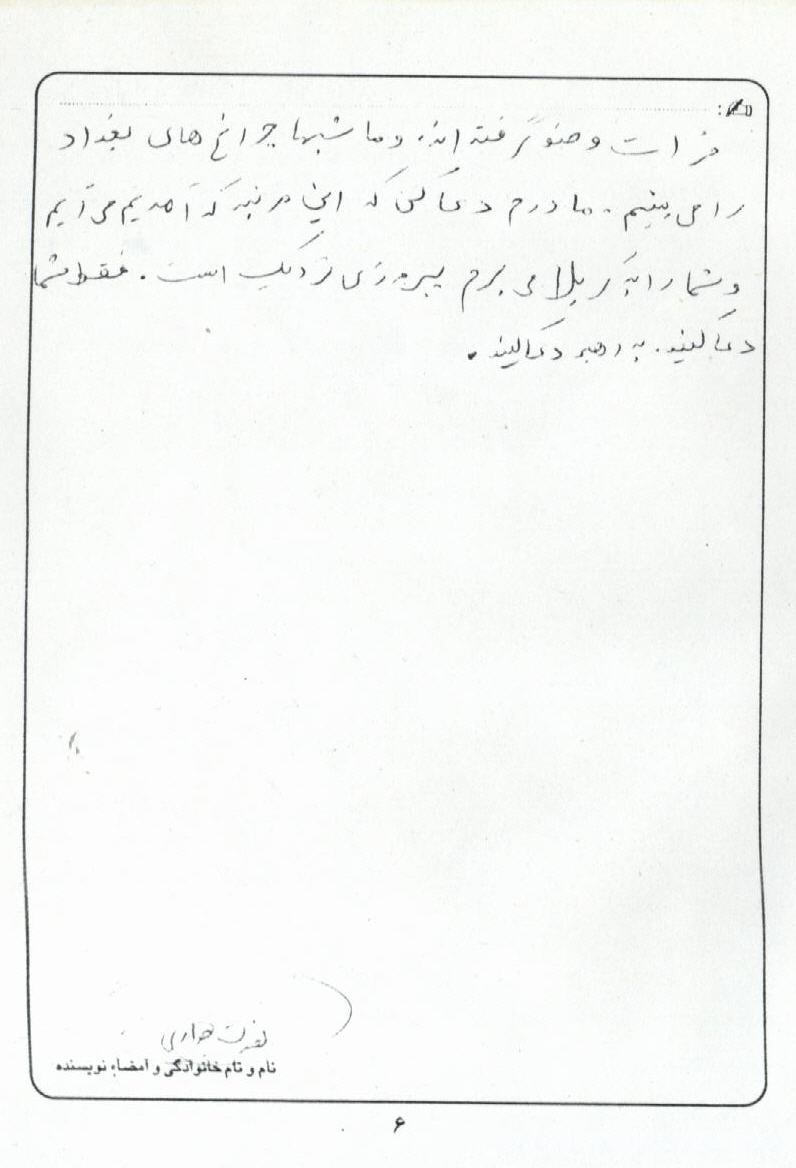 فرات وضو گرفته اند، وما شبها چراغ های بغداد
را می بینیم. مادرم دعا کن که این مرتبه که آمدیم می آیم
و شما را به کربلا می برم پیروزی نزدیک است. فقط شما
دعا کنید. به رهبر دعا کنید.
نصرت
نام و نام خانوادگی و امضاء نویسنده
۶